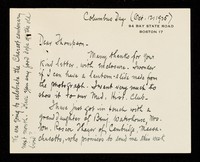 Columbus Day (Oct. 12, 1938)
94 BAY STATE ROAD
BOSTON 17
Dear Thompson,
Many thanks for your
kind letter, with enclosure. I wonder
if I can have a lantern-slide made from
the photograph. I want very much to
show it to our Med. Hist. Club.
I have just got in touch with a
great grand daughter of Benj. Waterhouse, Mrs.
Wm. Roscoe Thayer of Cambridge, Massa-
chusetts, who promises to send me the
We are going to celebrate the centenary
next month.